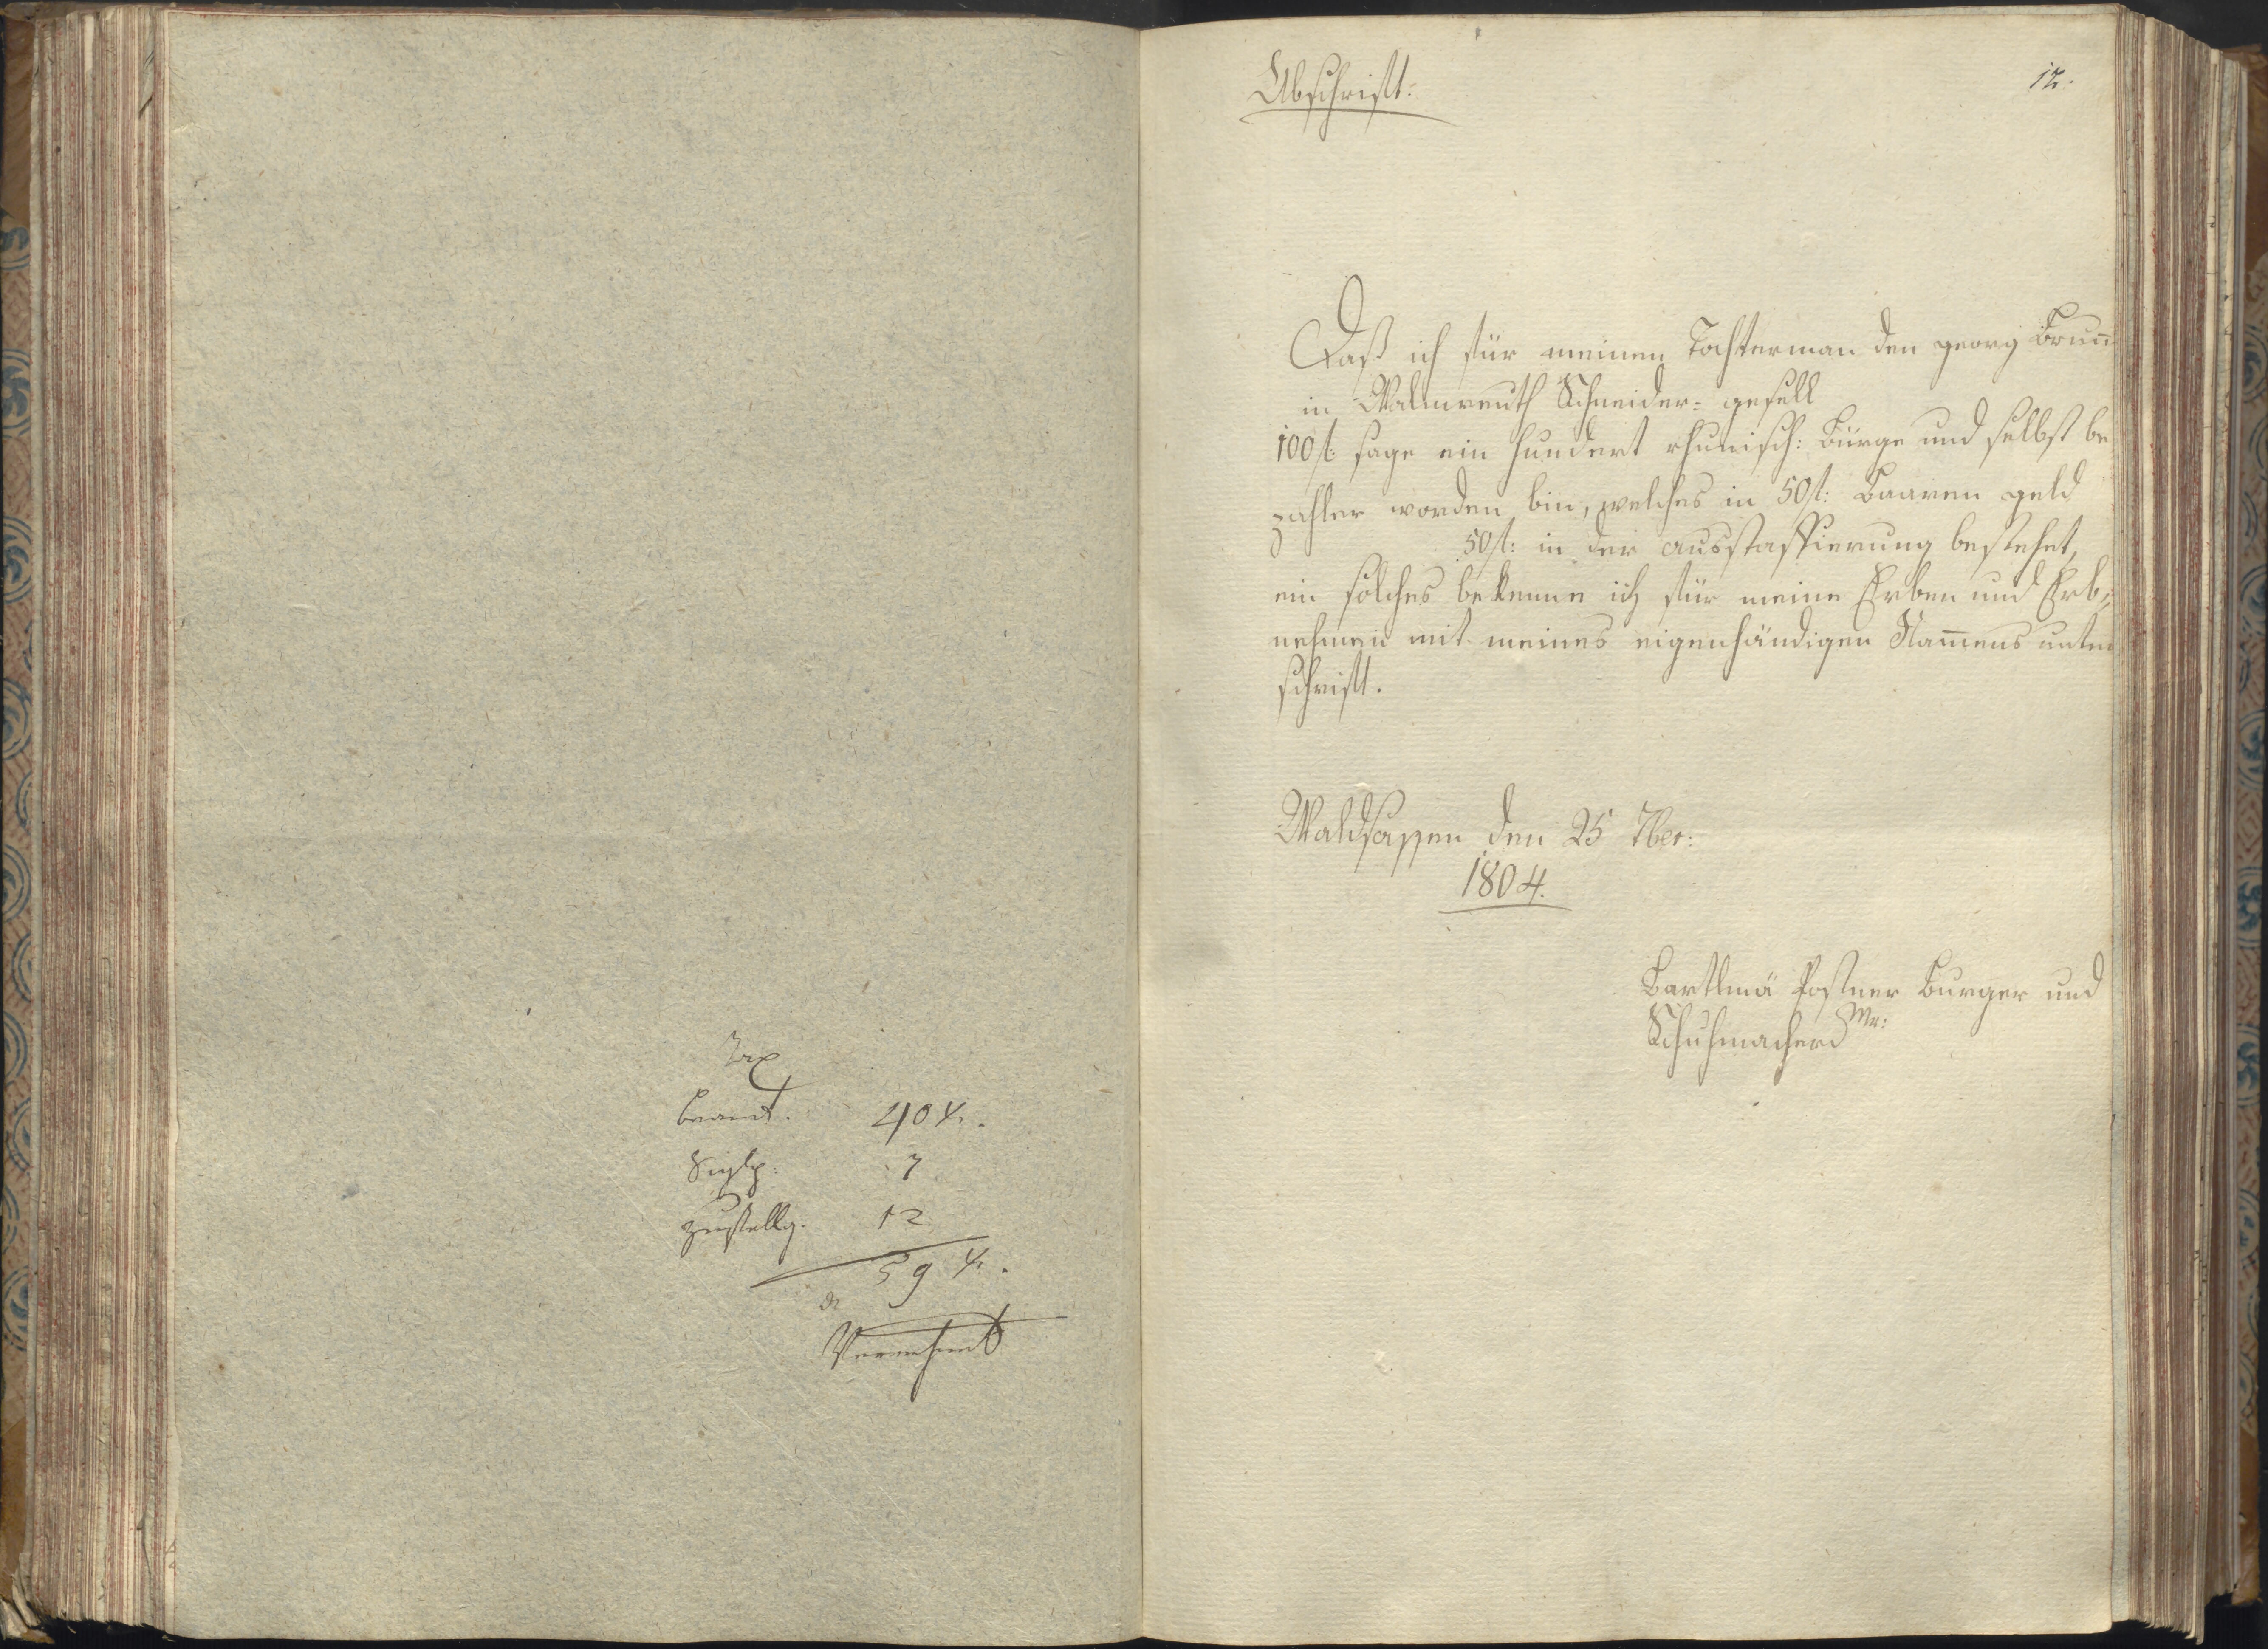 Tax
beamt. 40 x.
Siglg: 7
zustellg. 12
59 x.
Abschrift:
12.
Daß ich für meinen Tochterman den georg Brun̄
in Walmreuth Schneider= gesell
100 f: sage ein hundert rheinisch: Bürge und selbst be
zahler worden bin, welches in 50 f: Baaren geld
50 f: in der ausstaffierung bestehet,
ein solches bekenne ich für meine Erben und Erb=
nehmen mit meines eigenhändigen Nam̄ens unter
schrift.
Waldsassen den 25 7ber:
1804.
Bartlmä Postner Burger und
Schuhmacher Mr: